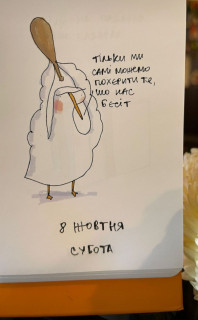 ТІЛЬКИ МИ
САМІ МОЖЕМО
ПОХЕРИТИ ТЕ,
ЩО НАС
БЕСІТ
8 ЖОВТНЯ
СУБОТА